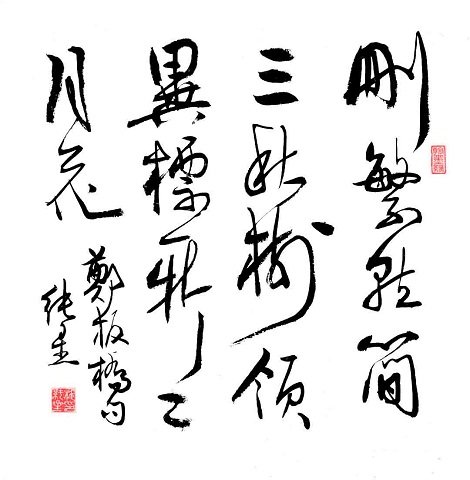 刪繁就簡
三秋樹領
異標新二
月花
鄭板橋句